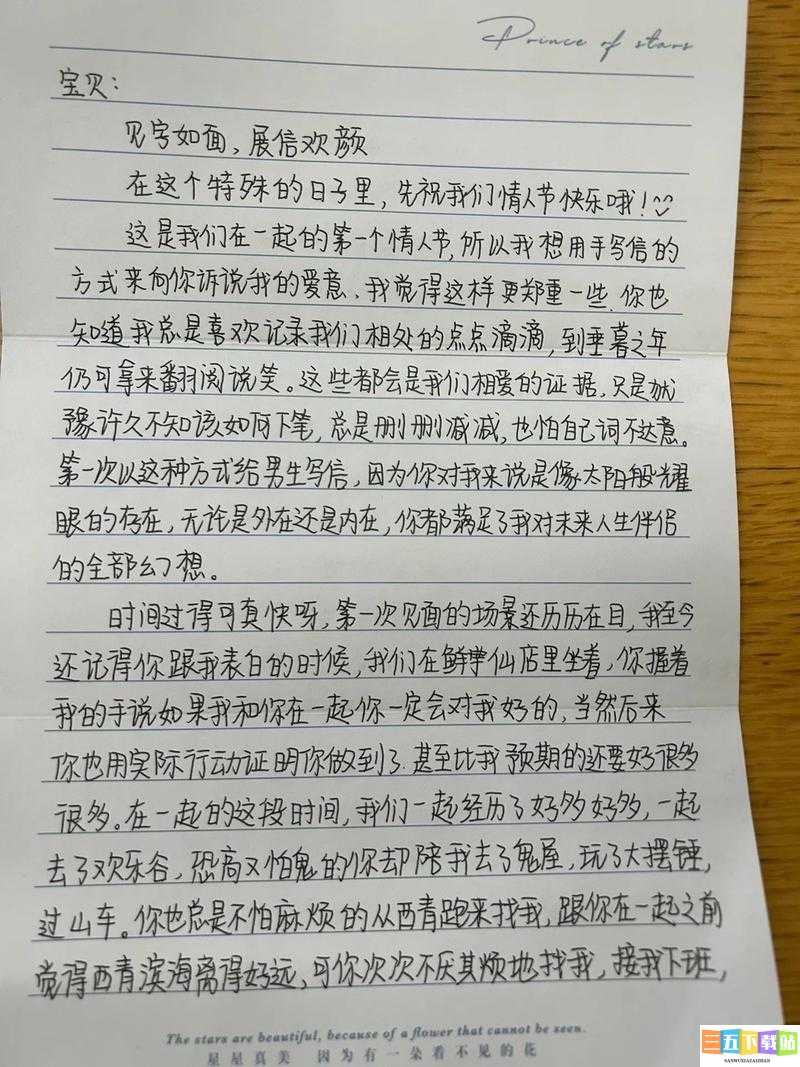 Prince of stars
宝贝：
见字如面、展信欢颜
在这个特殊的日子里，先祝我们情人节快乐哦！
这是我们在一起的第一个情人节，所以我想用手写信的
方式来向你诉说我的爱意、我觉得这样更郑重一些.你也
知道我总是喜欢记录我们相处的点点滴滴，到垂暮之年
仍可拿来翻阅说笑。这些都会是我们相爱的证据，只是犹
豫许久不知该如何下笔，总是删删减减，也怕自己词不达意。
第一次以这种方式给男生写信，因为你对我来说是像太阳般耀
眼的存在，无论是外在还是内在，你都满足了我对未来人生伴侣
的全部幻想。
时间过得可真快呀，第一次见面的场景还历历在目，我至今
还记得你跟我表白的时候，我们在鲜芋仙店里坐着，你握着
我的手说如果我和你在一起你一定会对我好的，当然后来
你也用实际行动证明你做到了.甚至比我预期的还要好很多
很多。在一起的这段时间，我们一起经历了好多好多，一起
去了欢乐谷，恐高又怕鬼的你却陪我去了鬼屋，玩了大摆锤，
过山车。你也总是不怕麻烦的从西青跑来找我，跟你在一起之前
觉得西青滨海离得好远，可你次次不厌其烦地找我，接我下班，
The stars are beautiful, because of a flower that cannot be seen.
星星真美 因为有一朵看不见的花
三五下载站
SANWUXIAZAIZHAN